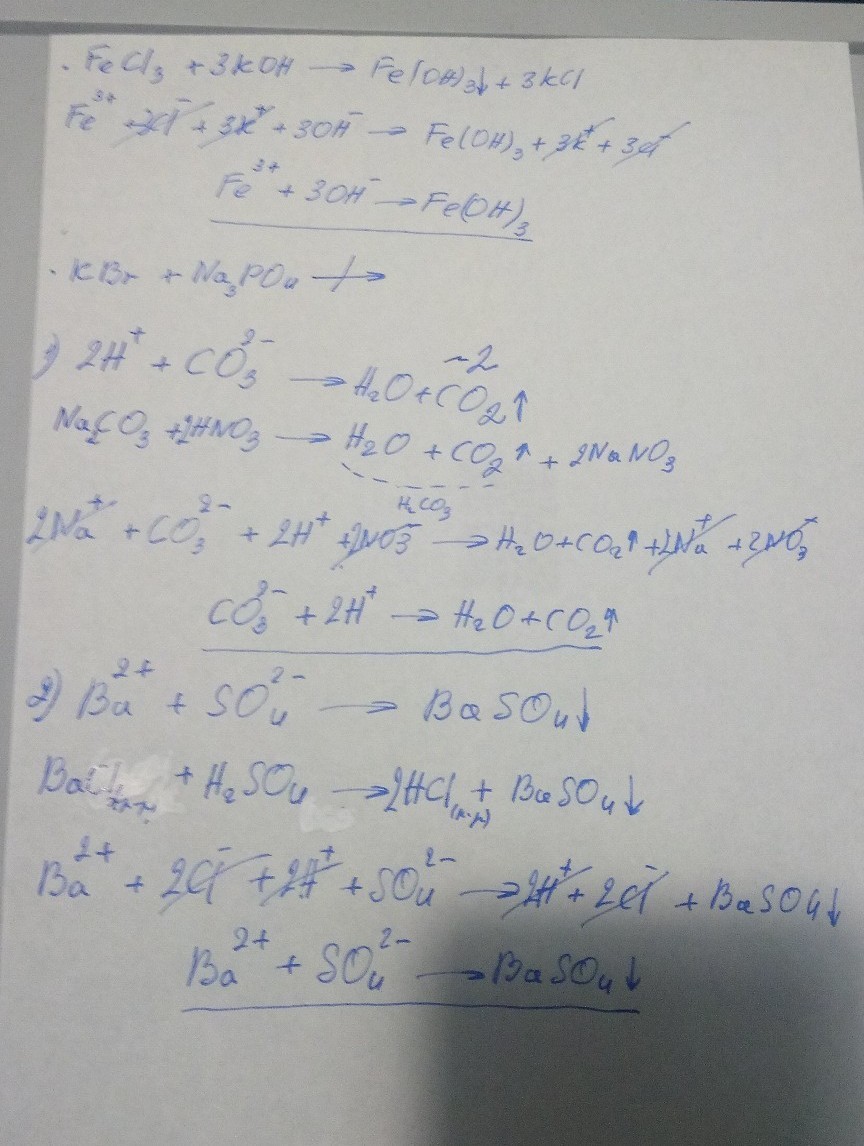 . FeCl₃ + 3KOH → Fe(OH)₃↓ + 3KCl
Fe³⁺ + 3Cl⁻ + 3K⁺ + 3OH⁻ → Fe(OH)₃ + 3K⁺ + 3Cl⁻
Fe³⁺ + 3OH⁻ → Fe(OH)₃
. KBr + Na₃PO₄ ↛
1) 2H⁺ + CO₃²⁻ → H₂O + CO₂↑
Na₂CO₃ + 2HNO₃ → H₂O + CO₂↑ + 2NaNO₃
H₂CO₃
2Na⁺ + CO₃²⁻ + 2H⁺ + 2NO₃⁻ → H₂O + CO₂↑ + 2Na⁺ + 2NO₃⁻
CO₃²⁻ + 2H⁺ → H₂O + CO₂↑
2) Ba²⁺ + SO₄²⁻ → BaSO₄↓
BaCl₂ + H₂SO₄ → 2HCl (р-р) + BaSO₄↓
Ba²⁺ + 2Cl⁻ + 2H⁺ + SO₄²⁻ → 2H⁺ + 2Cl⁻ + BaSO₄↓
Ba²⁺ + SO₄²⁻ → BaSO₄↓